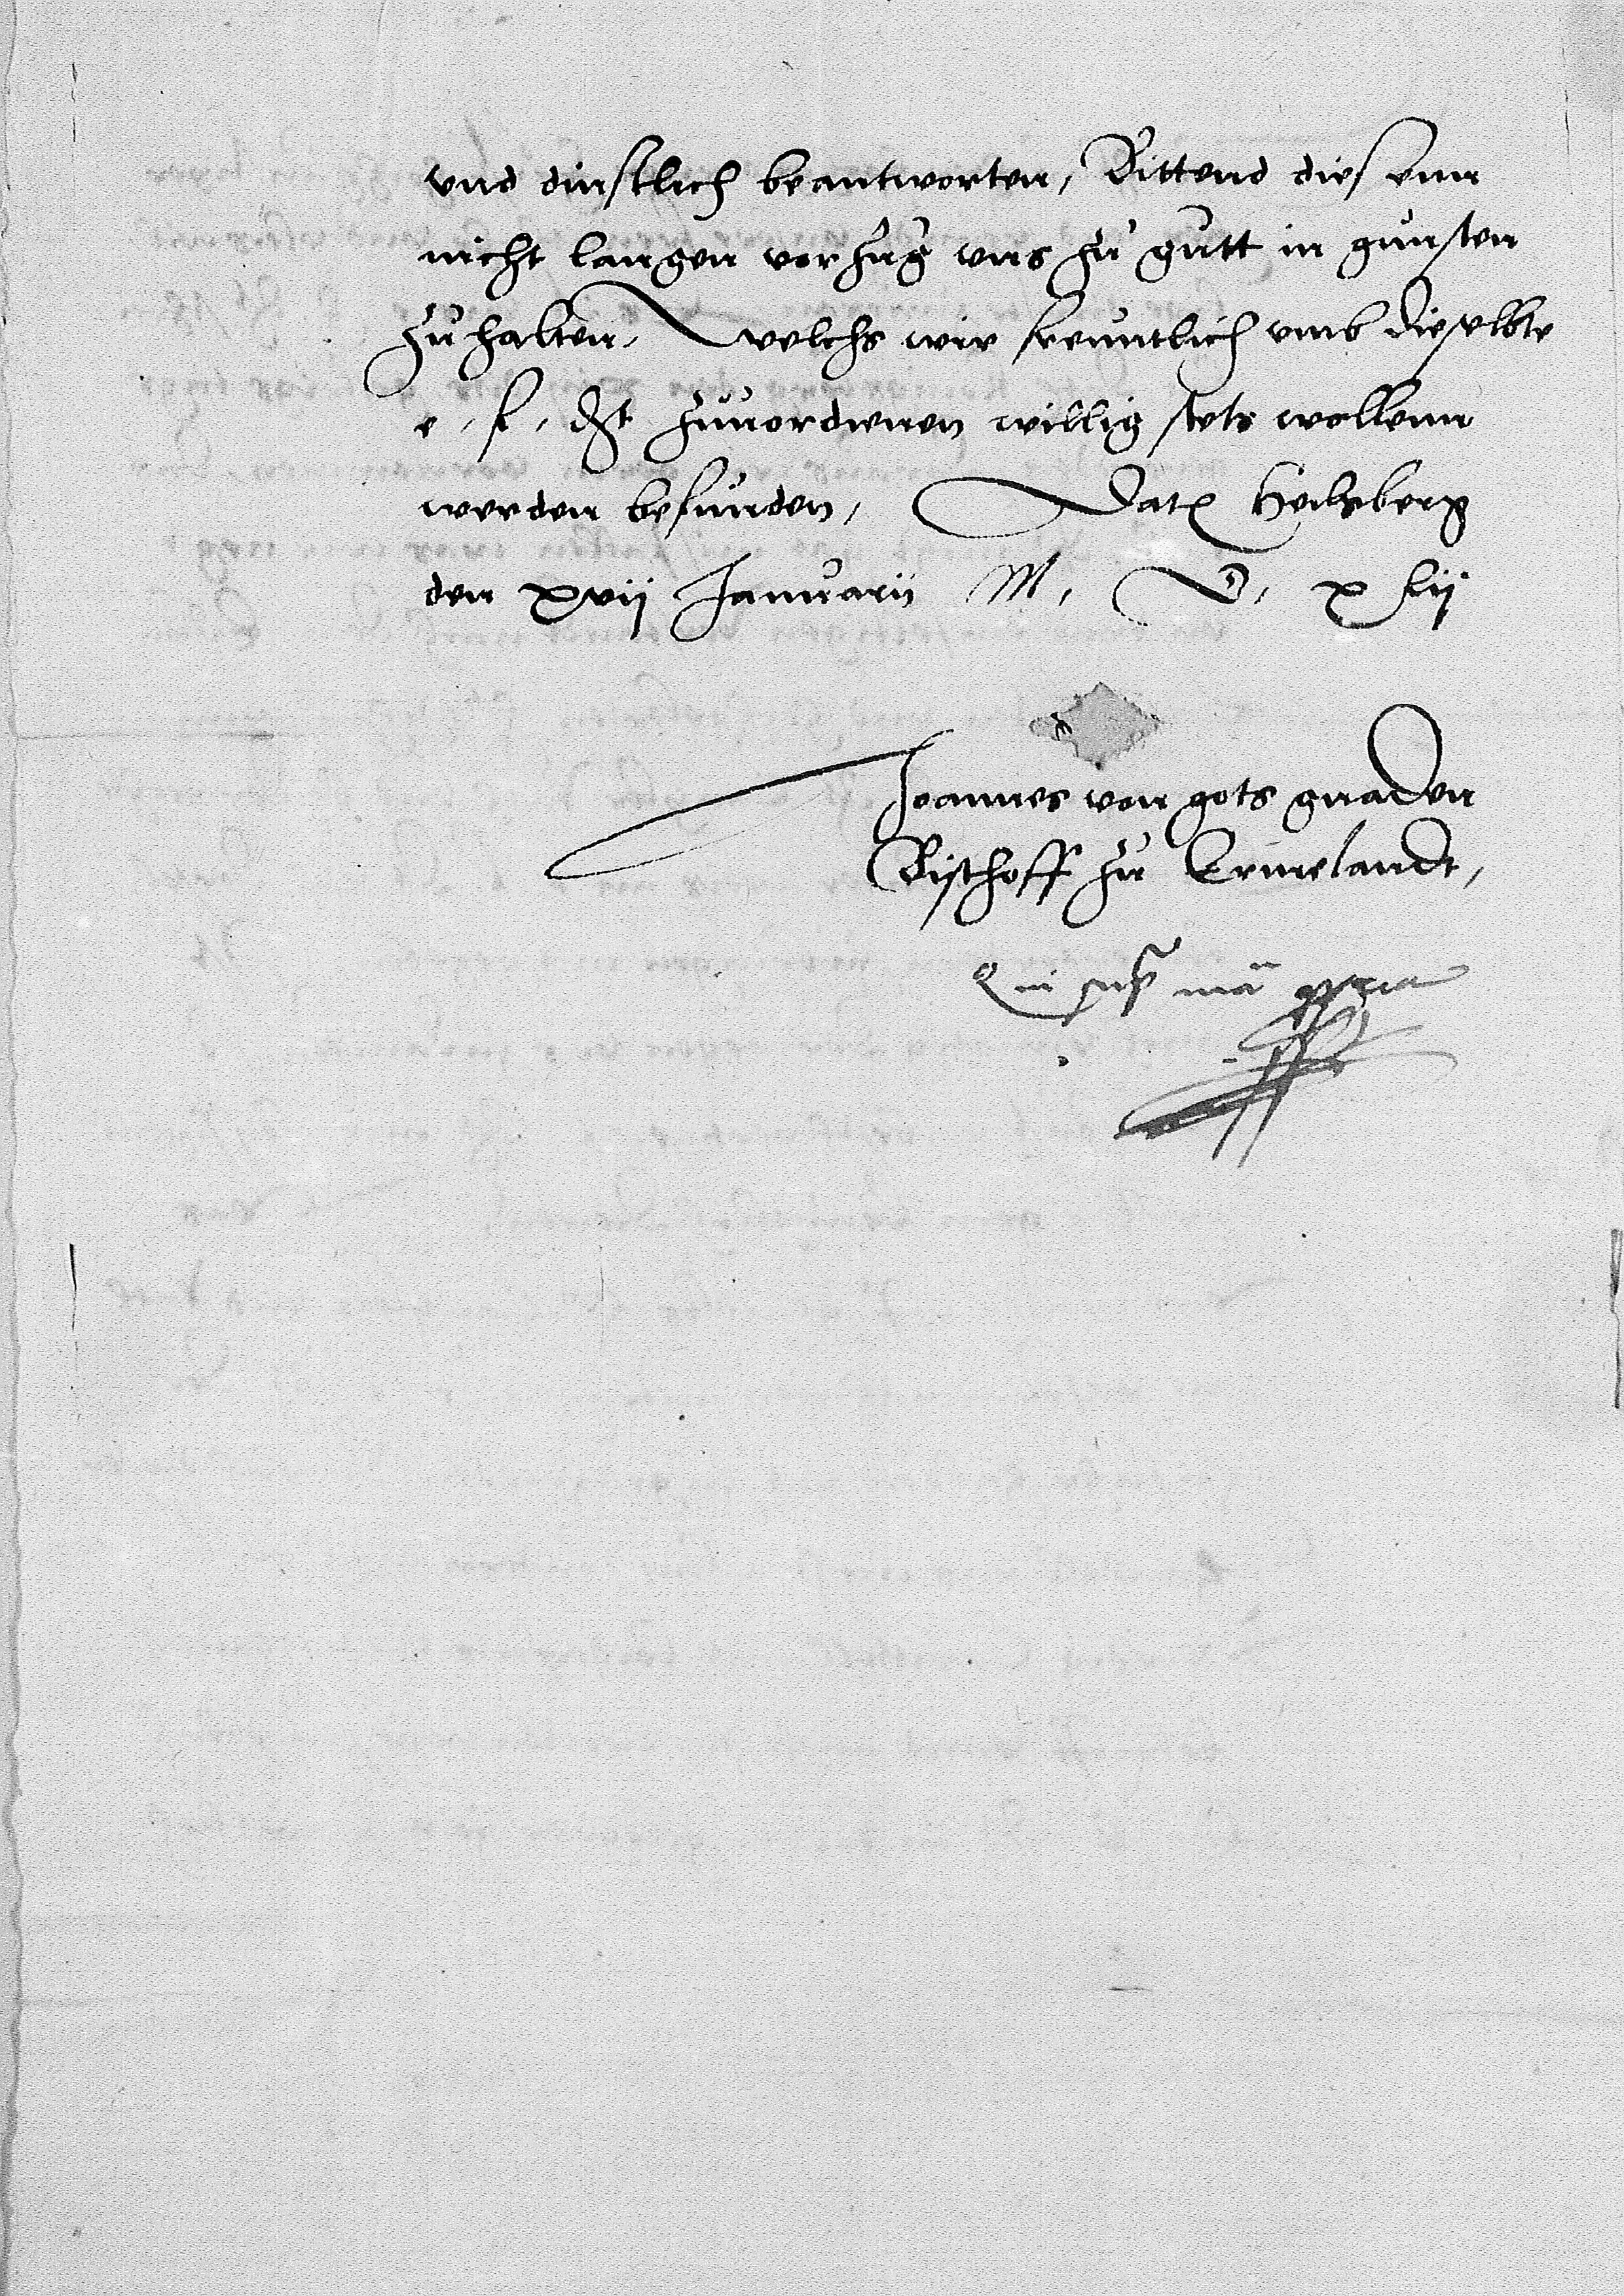 vnd dinstlich beantworten, Bittend diesenn
nicht langen vorzug vns zu gutt in gunsten
zu halten, welchs wir freuntlich vmb dieselbte
e, f, d zuuordienen willig stets wollenn
werden befunden, Dat Heilsberg
den xvij Januarij M, D, xlij
Joannes von gots gnaden
Bischoff zu Ermelandt,